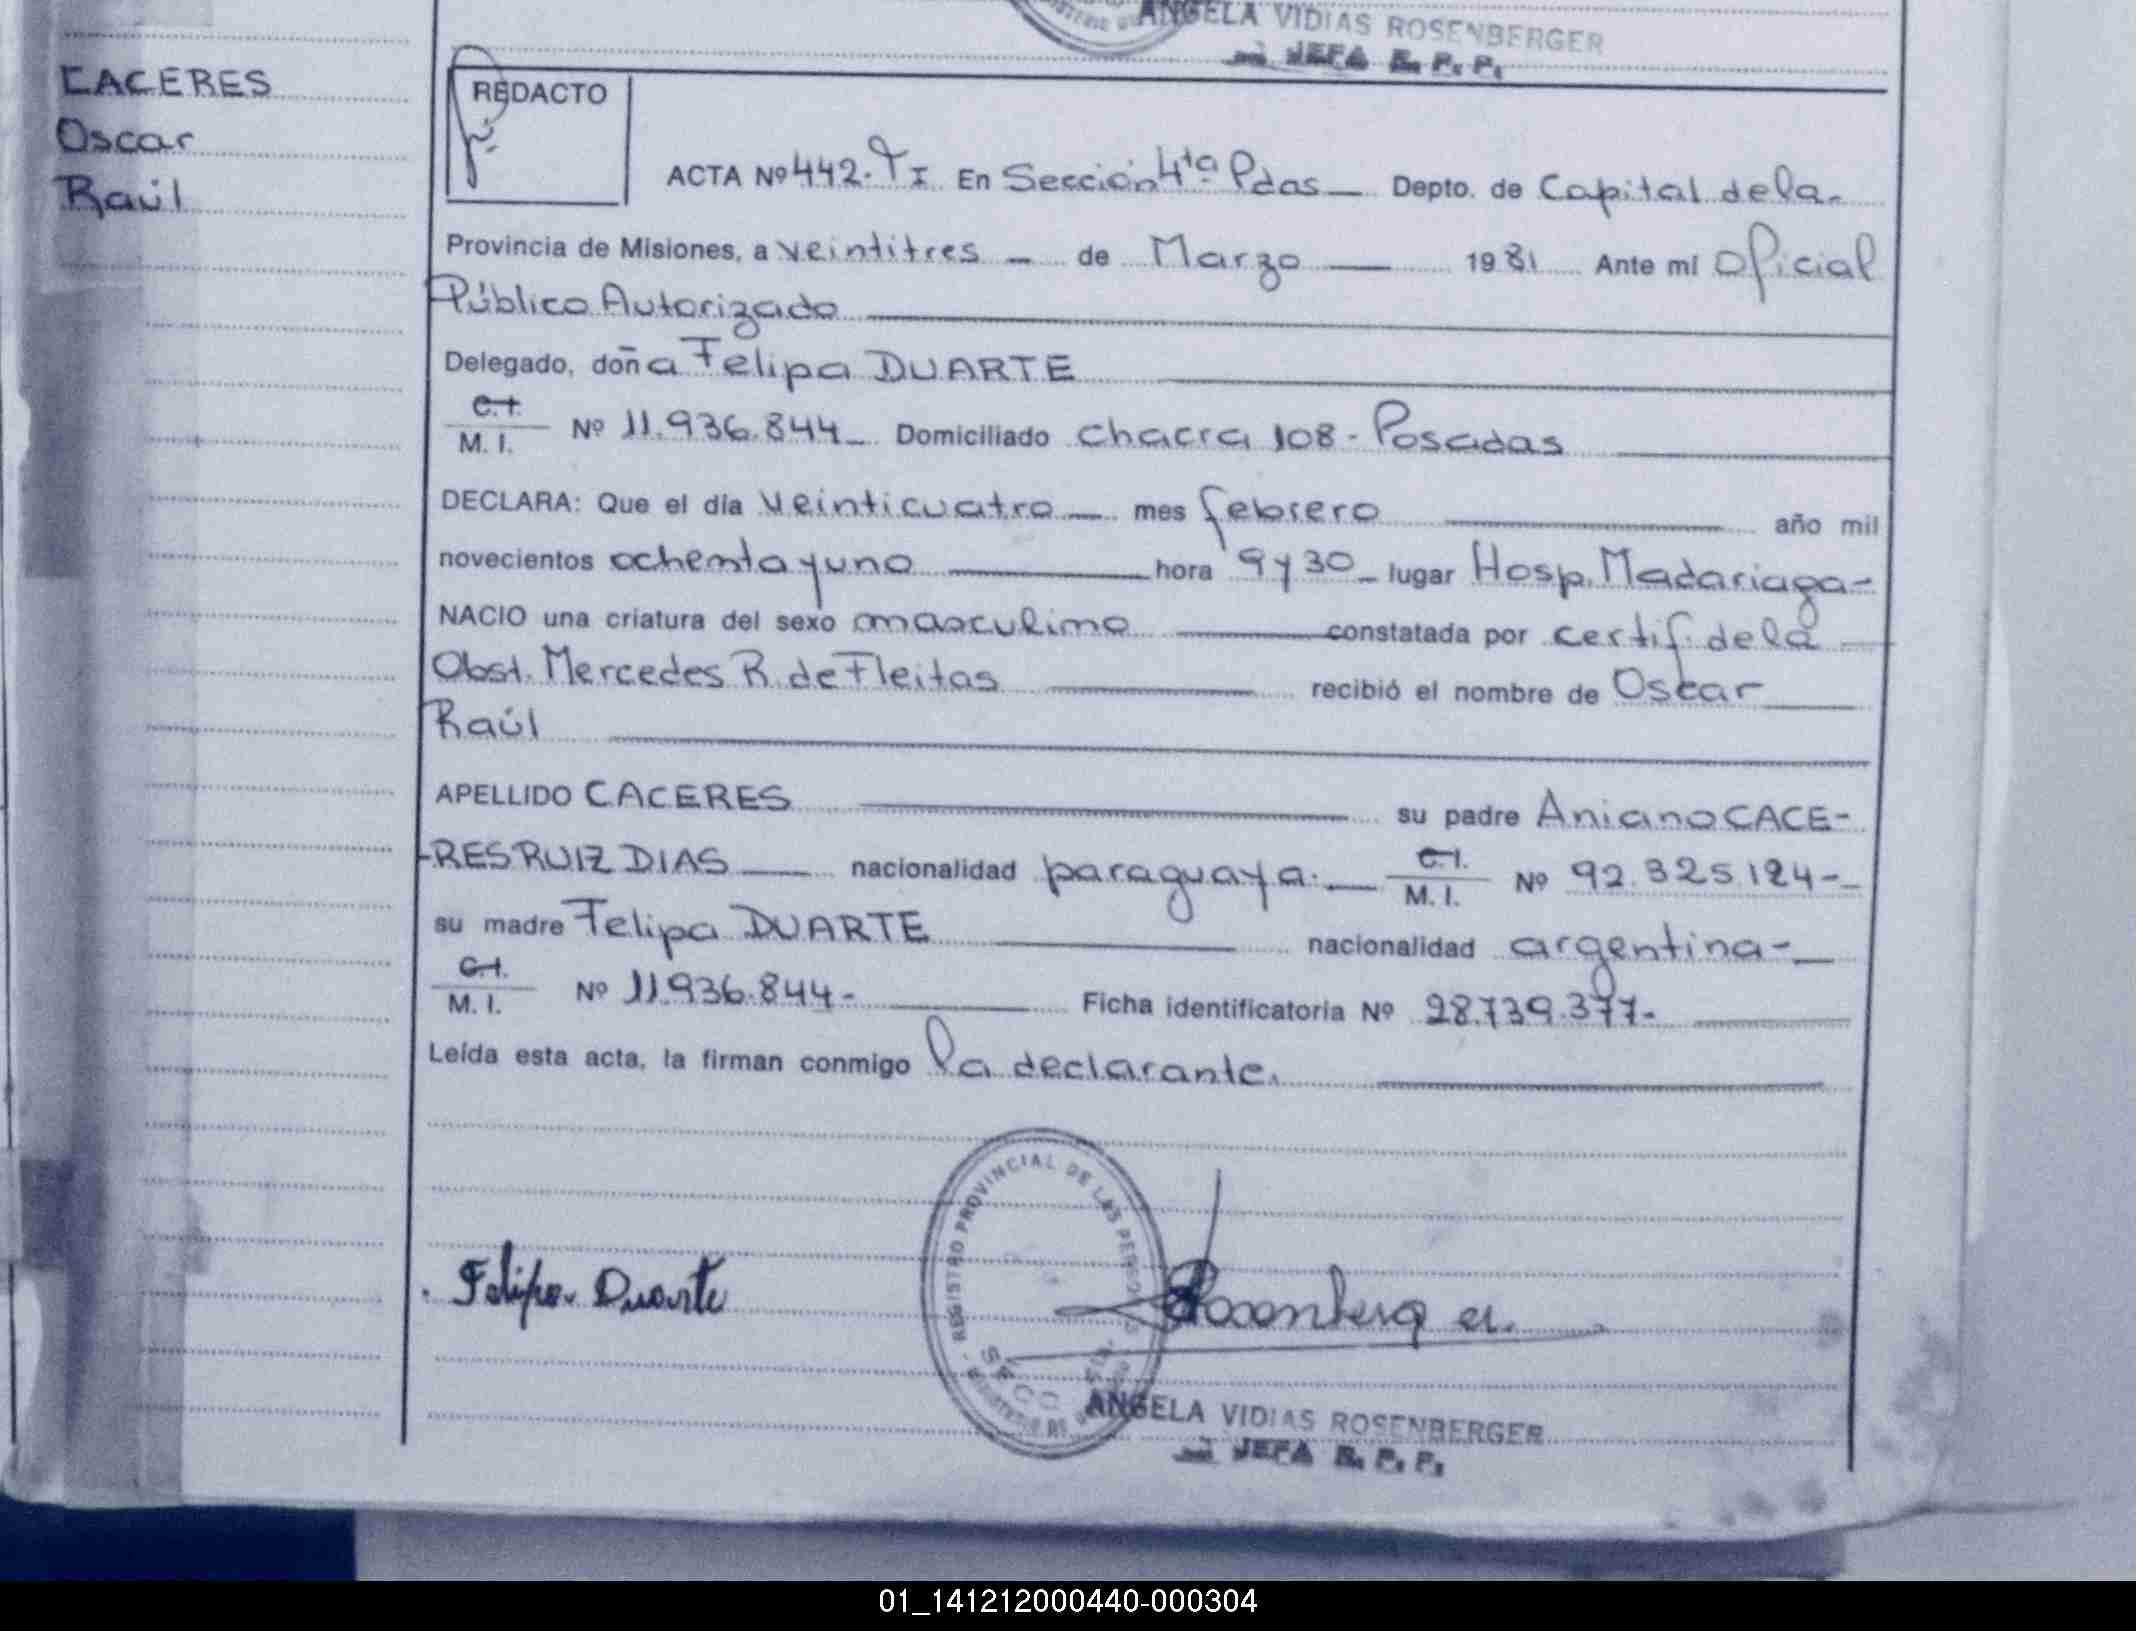 ANGELA VIDIAS ROSENBERGER
JEFA R. P. P.
CACERES
Oscar
Raúl
REDACTO
ACTA Nº 442. T I. En Sección 4ta Pdas Depto. de Capital de la
Provincia de Misiones, a veintitres de Marzo 1981 Ante mi Oficial
Público Autorizado
Delegado, doña Felipa DUARTE
C.I.
M. I. Nº 11.936.844 Domiciliado chacra 108 - Posadas
DECLARA: Que el día veinticuatro mes febrero año mil
novecientos ochenta y uno hora 9 y 30 lugar Hosp. Madariaga-
NACIO una criatura del sexo masculino constatada por certif. de la
Obst. Mercedes R. de Fleitas recibió el nombre de Oscar
Raúl
APELLIDO CACERES su padre Aniano CACE-
-RES RUIZ DIAS nacionalidad paraguaya. C.I.
M. I. Nº 92.325.124-
su madre Felipa DUARTE nacionalidad argentina-
C.I.
M. I. Nº 11.936.844- Ficha identificatoria Nº 28.739.377-
Leída esta acta, la firman conmigo la declarante.
REGISTRO PROVINCIAL DE LAS PERSONAS
Felipa Duarte
Rosenberger.
ANGELA VIDIAS ROSENBERGER
JEFA R. P. P.
01_141212000440-000304